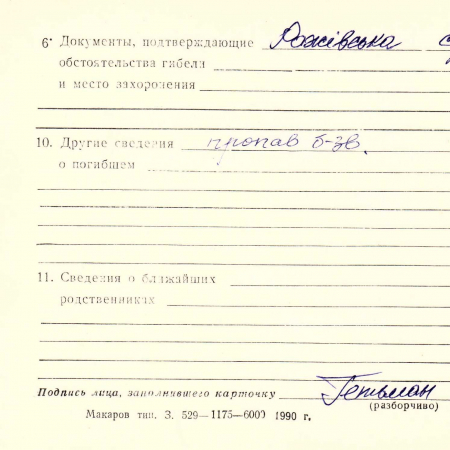 6. Документы, подтверждающие Рожівська
обстоятельства гибели
и место захоронения
10. Другие сведения пропав б-зв.
о погибшем
11. Сведения о ближайших
родственниках
Подпись лица, заполнившего карточку Гетьман
(разборчиво)
Макаров тип. З. 529—1175—6000 1990 г.